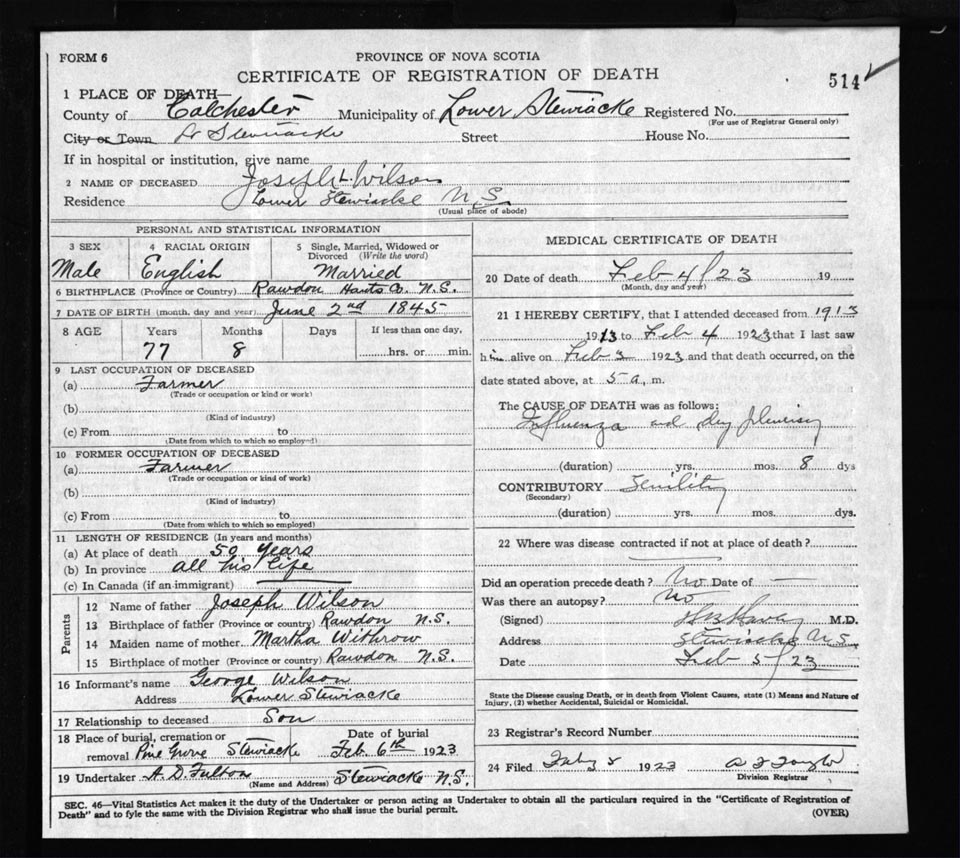 FORM 6
PROVINCE OF NOVA SCOTIA
CERTIFICATE OF REGISTRATION OF DEATH
514
1 PLACE OF DEATH—
County of Colchester Municipality of Lower Stewiacke Registered No.
(For use of Registrar General only)
City or Town Lr Stewiacke Street House No.
If in hospital or institution, give name
2 NAME OF DECEASED Joseph L. Wilson
Residence Lower Stewiacke N.S.
(Usual place of abode)
PERSONAL AND STATISTICAL INFORMATION
3 SEX 4 RACIAL ORIGIN 5 Single, Married, Widowed or Divorced (Write the word)
Male English Married
6 BIRTHPLACE (Province or Country) Rawdon Hants Co. N.S.
7 DATE OF BIRTH (month, day and year) June 2nd 1845
8 AGE Years Months Days If less than one day,
77 8 hrs. or min.
9 LAST OCCUPATION OF DECEASED
(a) Farmer
(Trade or occupation or kind or work)
(b)
(Kind of industry)
(c) From to
(Date from which to which so employed)
10 FORMER OCCUPATION OF DECEASED
(a) Farmer
(Trade or occupation or kind of work)
(b)
(Kind of industry)
(c) From to
(Date from which to which so employed)
11 LENGTH OF RESIDENCE (In years and months)
(a) At place of death 50 years
(b) In province all his life
(c) In Canada (if an immigrant)
Parents
12 Name of father Joseph Wilson
13 Birthplace of father (Province or country) Rawdon N.S.
14 Maiden name of mother Martha Withrow
15 Birthplace of mother (Province or country) Rawdon N.S.
16 Informant's name George Wilson
Address Lower Stewiacke
17 Relationship to deceased Son
18 Place of burial, cremation or Date of burial
removal Pine Grove Stewiacke Feb. 6th 1923
19 Undertaker A. D. Fulton Stewiacke N.S.
(Name and Address)
MEDICAL CERTIFICATE OF DEATH
20 Date of death Feb 4/23 19
(Month, day and year)
21 I HEREBY CERTIFY, that I attended deceased from 1913
1913 to Feb 4 1923 that I last saw
him alive on Feb 3 1923 and that death occurred, on the
date stated above, at 5 a.m.
The CAUSE OF DEATH was as follows:
Influenza and dry pleurisy
(duration) yrs. mos. 8 dys
CONTRIBUTORY Senility
(Secondary)
(duration) yrs. mos. dys.
22 Where was disease contracted if not at place of death?
Did an operation precede death? No Date of —
Was there an autopsy? No
(Signed) M.D.
Address Stewiacke N.S.
Date Feb 5/23
State the Disease causing Death, or in death from Violent Causes, state (1) Means and Nature of
Injury, (2) whether Accidental, Suicidal or Homicidal.
23 Registrar's Record Number
24 Filed 1923
Division Registrar
SEC. 46—Vital Statistics Act makes it the duty of the Undertaker or person acting as Undertaker to obtain all the particulars required in the "Certificate of Registration of
Death" and to fyle the same with the Division Registrar who shall issue the burial permit.
(OVER)